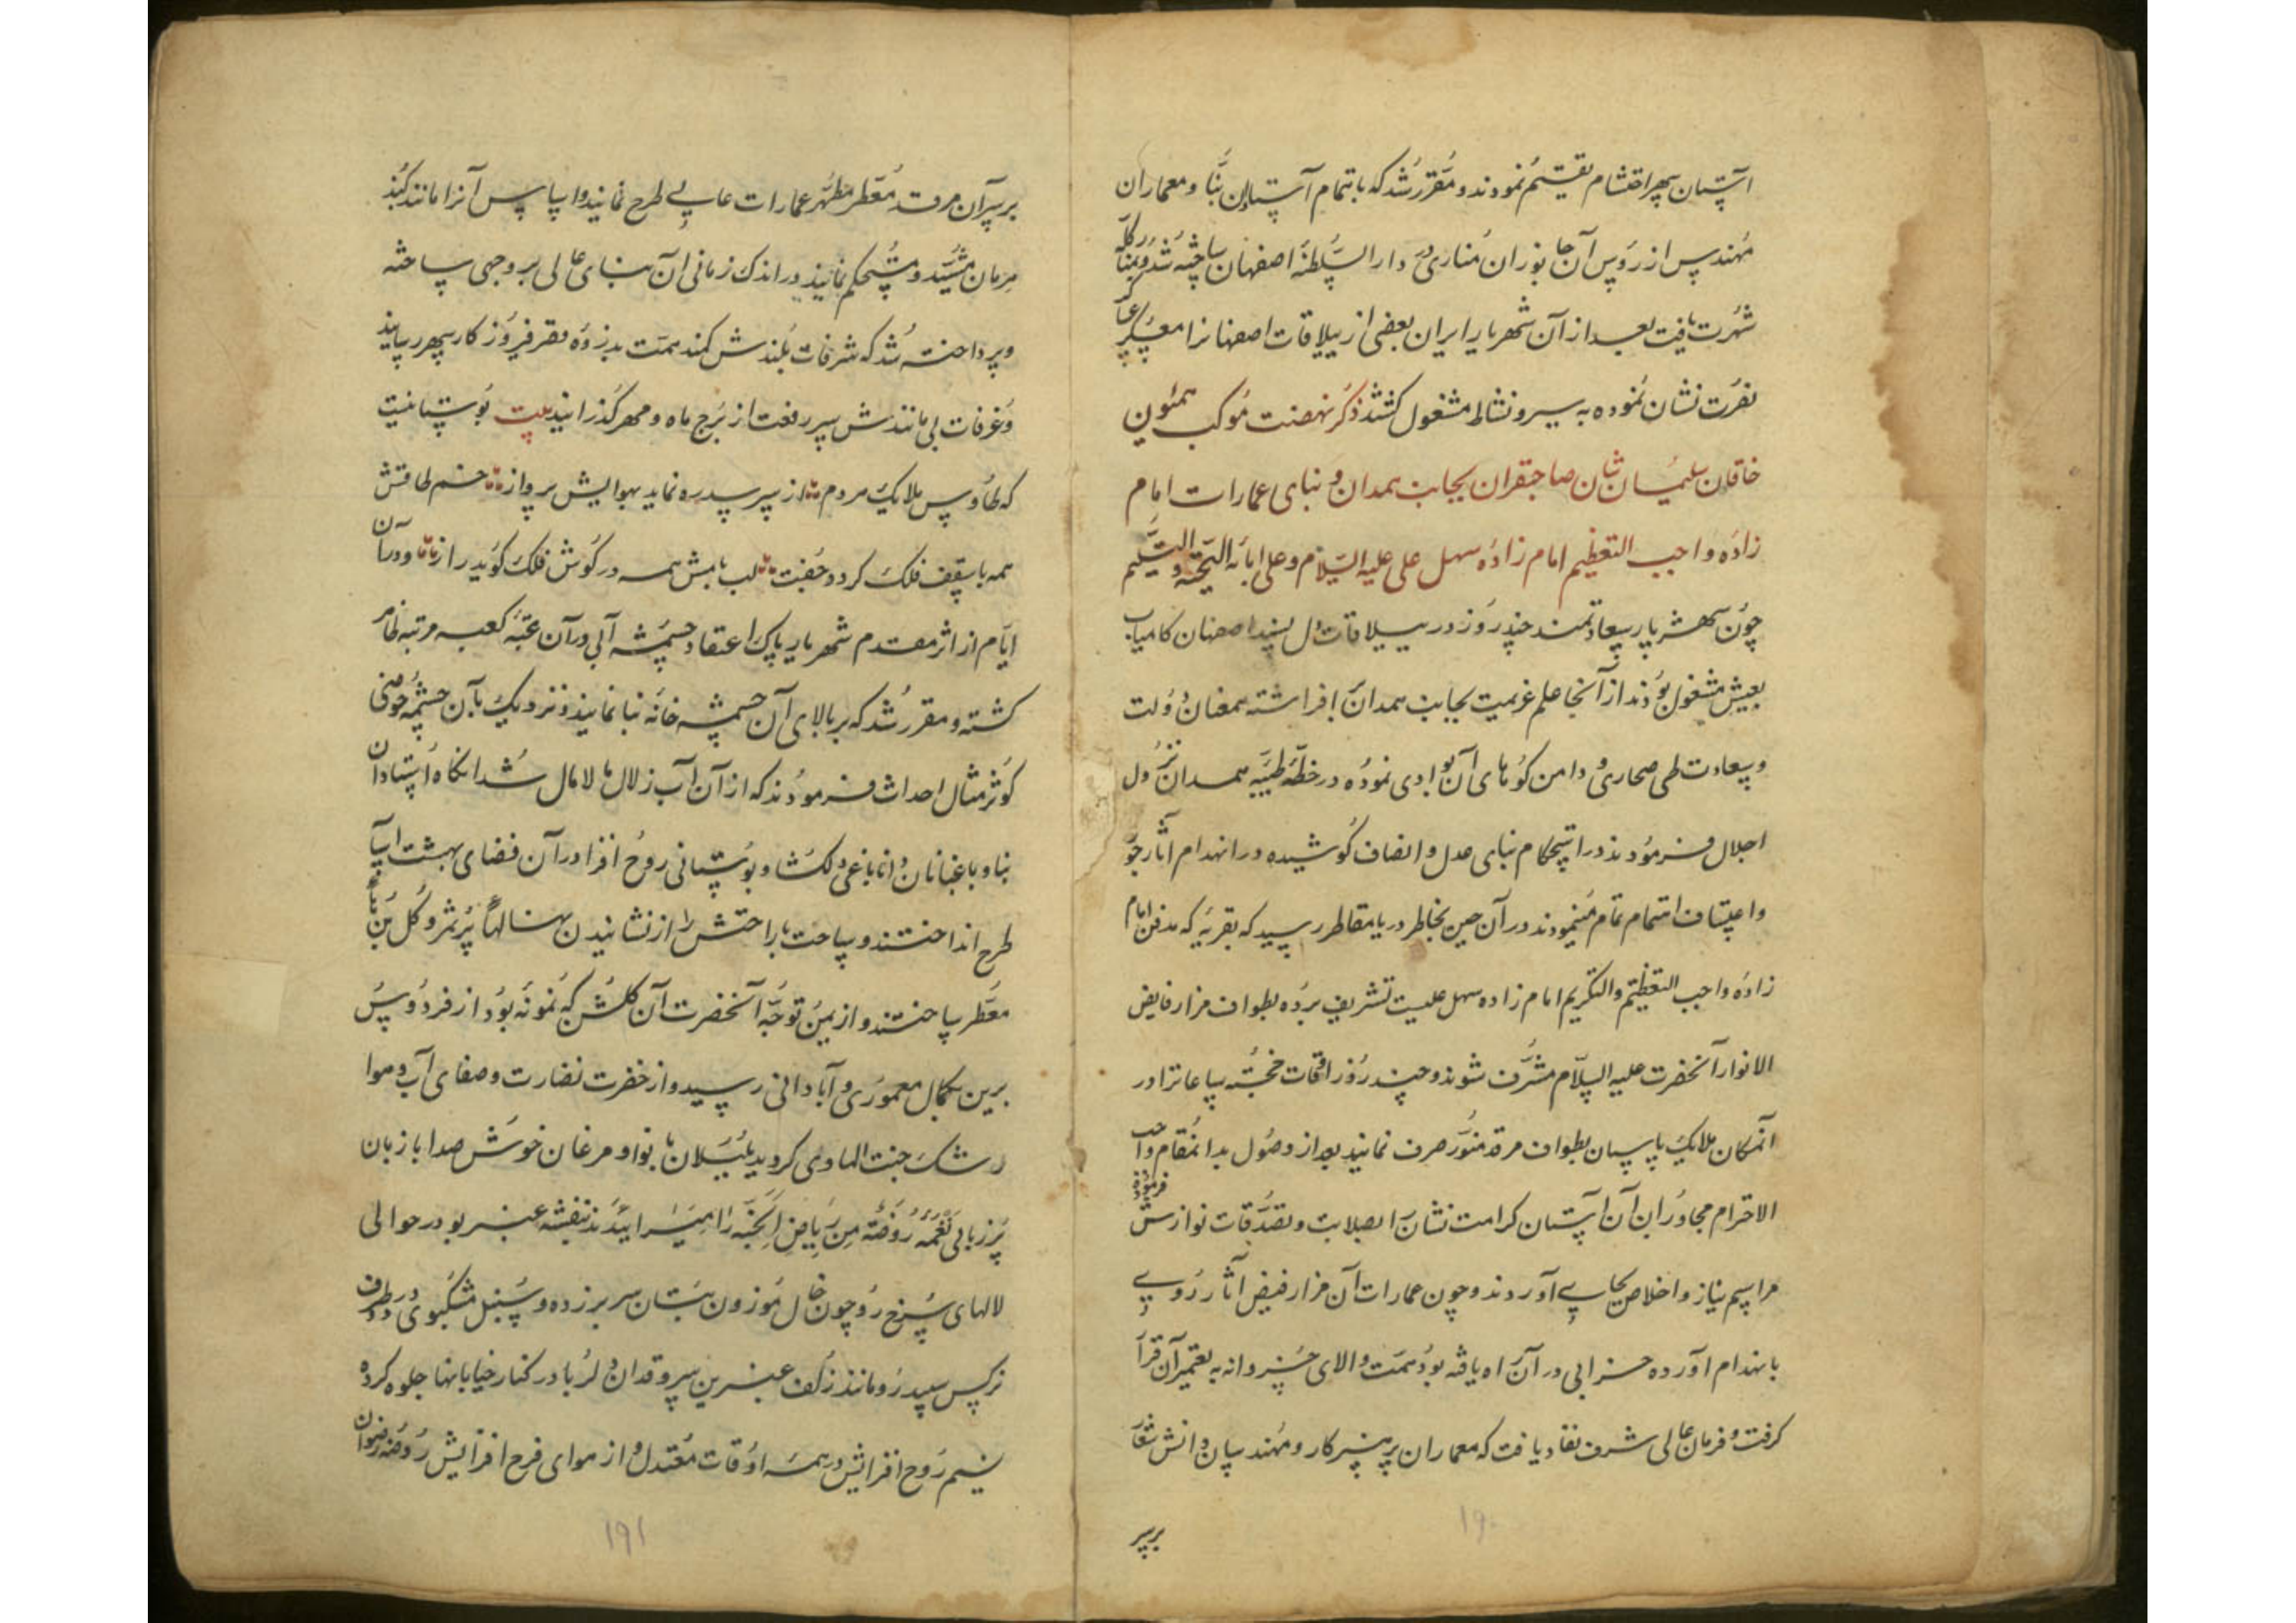 آستان سپهر احتشام تقسیم نمودند و مقرر شد که باتمام آستان بنّا و معماران
مهندس از رؤس آن جانوران مناری در دار السلطنه اصفهان ساخته شد و بمنار کله
شهرت یافت بعد از آن شهریار ایران بعضی از ییلاقات اصفهانرا معسکر
نصرت نشان نموده به سیر و نشاط مشغول گشتند ذکر نهضت موکب همیون
خاقان سلیمان شان صاحبقران بجانب همدان و بنای عمارات امام
زاده واجب التعظیم امام زاده سهل علی علیه السلام و علی ابائه التحیه و التسلیم
چون شهریار سعادتمند چند روز در ییلاقات دل پسند اصفهان کامیاب
بعیش مشغول بودند از آنجا علم عزیمت بجانب همدان افراشته همعنان دولت
و سعادت طی صحاری و دامن کوههای آن بوادی نموده در خطه طیبه همدان نزول
اجلال فرمودند و در استحکام بنای عدل و انصاف کوشیده در انهدام آثار جور
و اعتساف اهتمام تمام مینمودند در آن حین بخاطر دریا مقاطر رسید که بقریه که مدفن امام
زاده واجب التعظیم والتکریم امام زاده سهل علیست تشریف برده بطواف مزار فایض
الانوار آنحضرت علیه السلام مشرف شوند و چند روز اوقات خجسته ساعاترا در
انمکان ملایک پاسبان بطواف مرقد منور صرف نمایند بعد از وصول بدانمقام واجب
الاحترام مجاوران آن آستان کرامت نشانرا بصلات و تصدقات نوازش فرموده
مراسم نیاز و اخلاص بجای آوردند و چون عمارات آن مزار فیض آثار روی
بانهدام آورده خرابی در آن راه یافته بود همت والای خسروانه به تعمیر آن قرار
گرفت و فرمان عالی شرف نفاد یافت که معماران پر هنر کار و مهندسان دانش شعار
بر سر
۱۹۰
بر سر آن مرقد معطر مطهر عمارات عالی طرح نمایند و اساس آنرا مانند گنبد
هرمان مشید و مستحکم نمایند در اندک زمانی ان بنای عالی بر وجهی ساخته
و پرداخته شد که شرفات بلندش کمند همت بدزوه قصر فیروز کار سپهر رسانید
و غرفات بی مانندش سر رفعت از برج ماه و مهر گذرانید بیت بوستانیست
که طاوس ملایک مردم از سر سدره نماید بهوایش پرواز خم طاقش
همه با سقف فلک کردد جفت لب بامش همه در کوش فلک کوید راز و در آن
ایام از اثر مقدم شهریار پاک اعتقاد چشمه آبی در آن عتبه کعبه مرتبه ظاهر
کشته و مقرر شد که بر بالای آن چشمه خانه بنا نمایند و نزدیک بآن چشمه حوضی
کوثر مثال احداث فرمودند که از آن آب زلال مالامال شد انکاه استادان
بنا و باغبانان دانا باغی دلکشا و بوستانی روح افزا در آن فضای بهشت آسا
طرح انداختند و ساحت با راحتش را از نشانیدن نهالهای پر ثمر و کل بن
معطر ساختند و از یمن توجه آنحضرت آن کلشن که نمونه بود از فردوس
برین بکمال معموری و آبادانی رسید و از خضرت نضارت و صفای آب و هوا
رشک جنت الماوی کردید بلبلان با نوا و مرغان خوش صدا با زبان
پر زبانی نغمه روضة من ریاض الجنه را میسرایندند بنفشه عنبر بو در حوالی
لالهای سرخ رو چون خال موزون بتان سر بر زده و سنبل مشکبوی در طرف
نرکس سپید رو مانند زلف عنبرین سرو قدان دلربا در کنار خیابانها جلوه کرده
نسیم روح افزایش در همه اوقات معتدل و از هوای فرح افزایش روضه رضوان
۱۹۱